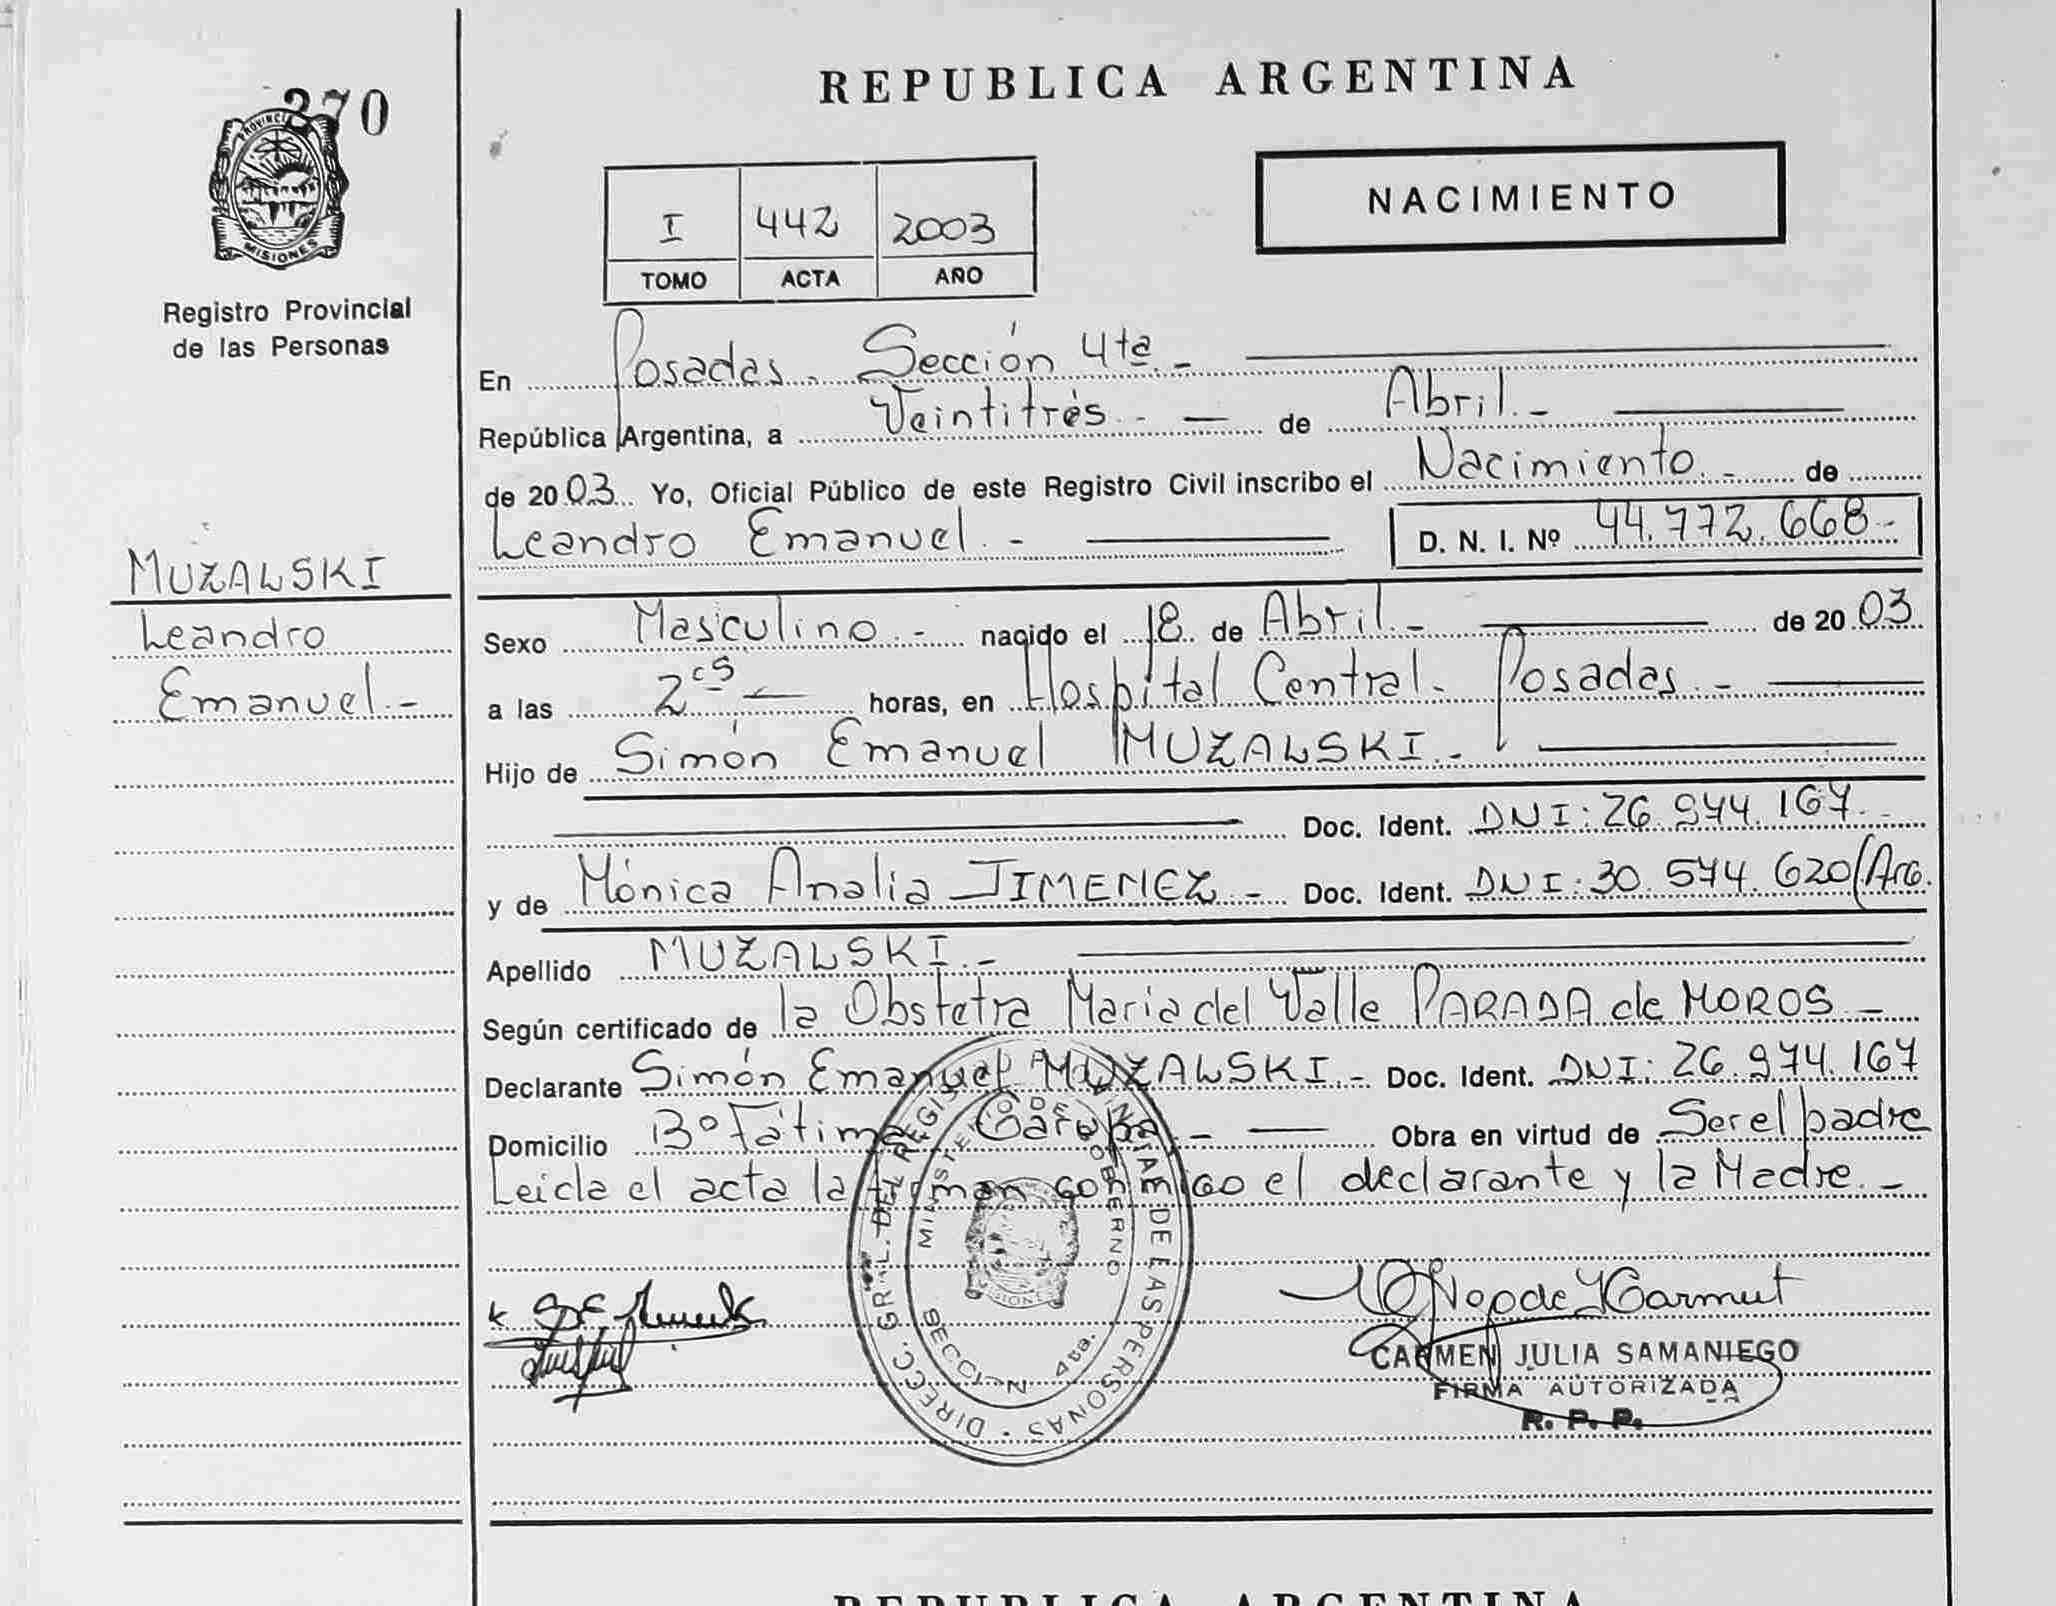 270
PROVINCIA
MISIONES
Registro Provincial
de las Personas
MUZALSKI
Leandro
Emanuel.-
REPUBLICA ARGENTINA
I 442 2003
TOMO ACTA AÑO
NACIMIENTO
En Posadas. Sección 4ta.-
República Argentina, a Veintitrés.- de Abril.-
de 2003. Yo, Oficial Público de este Registro Civil inscribo el Nacimiento.- de
Leandro Emanuel.- D. N. I. Nº 44.772.668.-
Sexo Masculino.- nacido el 18 de Abril.- de 2003
a las 2 cs horas, en Hospital Central. Posadas.-
Hijo de Simón Emanuel MUZALSKI.-
Doc. Ident. DNI: 26.974.167.-
y de Mónica Analia JIMENEZ.- Doc. Ident. DNI: 30.574.620/Arg.
Apellido MUZALSKI.-
Según certificado de la Obstetra Maria del Valle PARADA de MOROS.-
Declarante Simón Emanuel MUZALSKI.- Doc. Ident. DNI: 26.974.167
Domicilio Bº Fátima. Garupá.- Obra en virtud de Ser el padre
Leida el acta la firman conmigo el declarante y la Madre.-
DIRECC. GRAL. DEL REGISTRO PROVINCIAL DE LAS PERSONAS
MINISTERIO DE GOBIERNO
MISIONES
SECCIÓN 4ta.
CARMEN JULIA SAMANIEGO
FIRMA AUTORIZADA
R. P. P.
REPUBLICA ARGENTINA